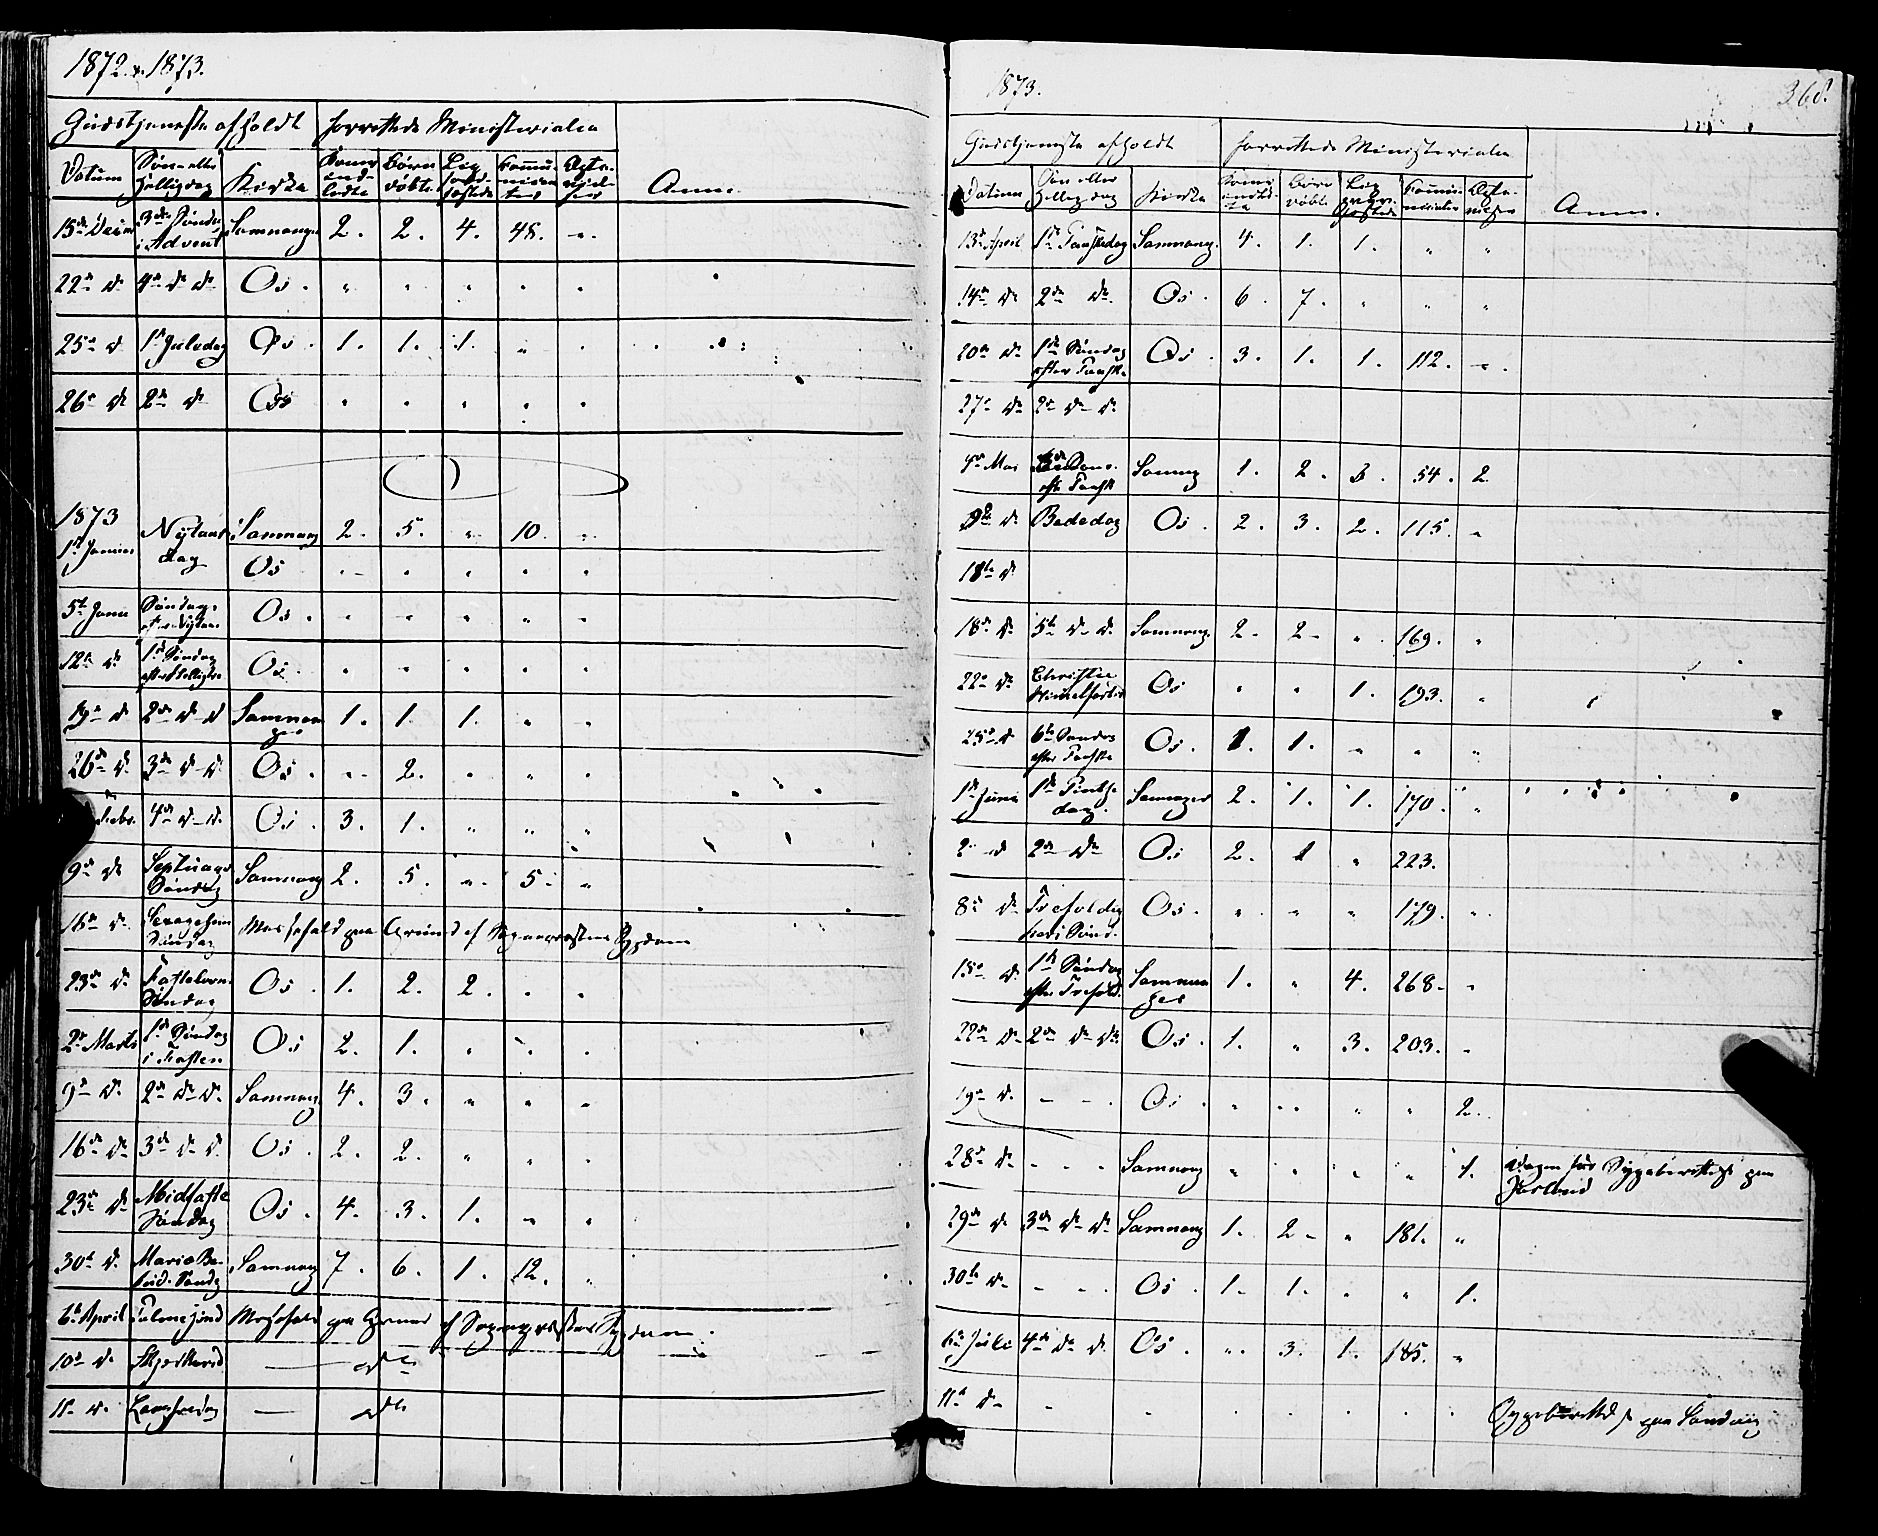 1872 & 1873.
Gudstjeneste afholdt forrettede Ministerialia
Datum Søn- eller Helligdag Kirke Koner indledte Børn døbte Lig jordfæstede Communicanter Ægtevid Anm.
15de Decbr 3die Søndag i Advent Samnanger 2. 2. 4. 48. „
22de do 4de do do Os. „ „ „ „ „
25de do 1ste Juledag Os. 1. 1. 1. „ „
26de do 2den do Os „ „ „ „ „
1873
1ste Januar Nytaarsdag Samnang 2. 5. „ 10. „
Os „ „ „ „ „
5te Janr Søndag efter Nytaar Os. „ „ „ „ „
12te do 1ste Søndag efter Hellig3 Os. „ „ „ „ „
19de do 2den do do Samnanger 1. 1. 1. „ „
26de do 3die do do Os. „ 2. „ „ „
Febr. 4de do do Os. 3. 1. „ „ „
9de do Septuag. Søndag Samnang 2. 5. „ 5. „
16de do Sexagesim Søndag Messefald paa Grund af Sognepræstens Sygdom
23de do Fastelavns Søndag Os. 1. 2. 2. „ „
2den Marts 1ste Søndag i Fasten Os 2. 1. „ „ „
9de do 2den do do Samnang. 4. 3. „ „ „
16de do 3die do do Os. 2. 2. „ „ „
23de do Midfaste Søndag Os. 4. 3. 1. „ „
30te do Maria Bebud. Søndg Samnang 7. 6. 1. 12. „
6te April Palmesønd Messefald paa Grund af Sognepræstens Sygdom.
10de do Skjærthorsd — do
11te do Langfredag — do
1873. 368.
Gudstjeneste afholdt forrettede Ministerialia
Datum Søn eller Helligdag Kirke Koner indledte Børn døbte Lig jordfæstede Communicanter Anm.
13de April 1ste Paaskedag Samnang. 4. 1. 1. „ „
14de do 2den do Os. 6. 7. „ „ „
20de do 1ste Søndag efter Paaske Os. 3. 1. 1. 112. „
27de do 2den do do
4de Mai Sønd. eft. Paask Samnang 1. 2. 3. 54. 2.
do Bededag Os. 2. 3. 2. 115. „
18de do
18de do 5te do do Samnang. 2. 2. „ 169. „
22de do Christi Himmelfartsd Os „ „ 1. 193. „
25de do 6te Søndag efter Paaske Os. 1. 1. „ „ „
1ste Juni 1ste Pintsedag. Samnanger 2. 1. 1. 170. „
2 do 2den do Os 2. 1 „ 223.
8de do Trefoldigheds Sønd. Os. „ „ „ 179. „
15de do 1ste Søndag efter Trefold. Samnanger 1. „ 4. 268. „
22de do 2den do do Os. 1. „ 3. 203. „
19de do - - Os. „ „ „ „ 2.
28de do - - - Samnang „ „ „ „ 1. Dagen før Sygeberettelse paa
29de do 3die do do Samnang 1. 2. „ 181. „
30te do - - Os. 1. 1. „ „ 1.
6te Juli 4de do do Os. „ 3. 1. 185. „
11te do - - Sygeberettelse paa